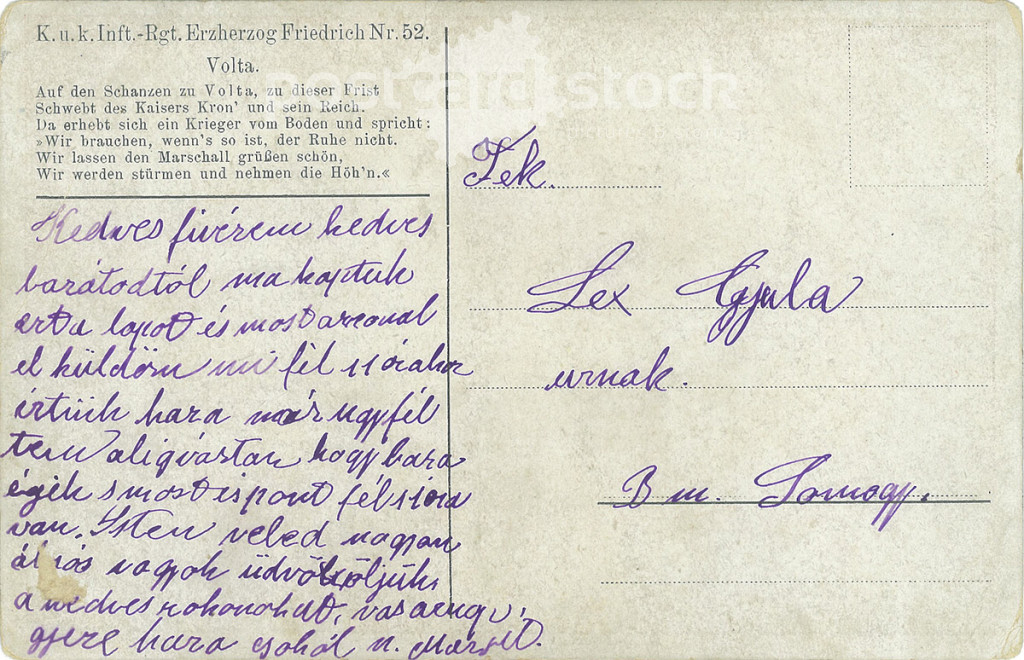 K. u. k. Inft.-Rgt. Erzherzog Friedrich Nr. 52.
Volta.
Auf den Schanzen zu Volta, zu dieser Frist
Schwebt des Kaisers Kron' und sein Reich.
Da erhebt sich ein Krieger vom Boden und spricht:
»Wir brauchen, wenn's so ist, der Ruhe nicht.
Wir lassen den Marschall grüßen schön,
Wir werden stürmen und nehmen die Höh'n.«
postcard stock
Tek.
Lex Gyula
urnak.
B m. Somogy.
Kedves fivérem kedves
barátodtól ma kaptuk
ezt a lapot és most azonal
el küldöm mi fél 11 órakor
értük haza már ugy fél
tem aligvártan hogy haza
égék s most is pont fél 11 óra
van. Isten veled nagyon
álmos vagyok üdvözöljük
a kedves rokonokat,
gyere haza csokól n.